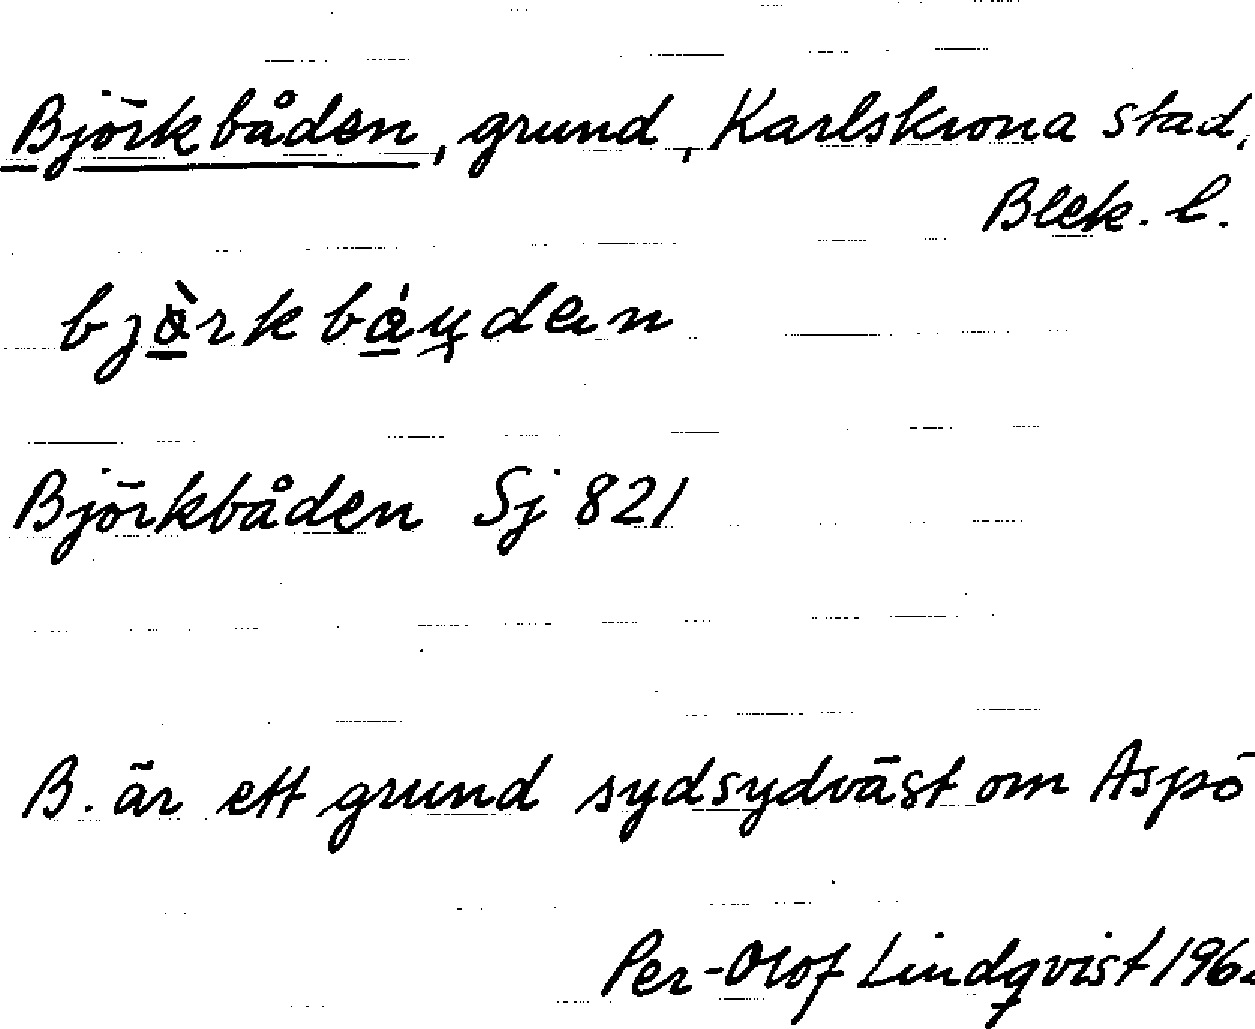 Björkbåden, grund, Karlskrona stad,
Blek. l.
Björkbåden Sj 821
B. är ett grund sydsydväst om Aspö
Per-Olof Lindqvist